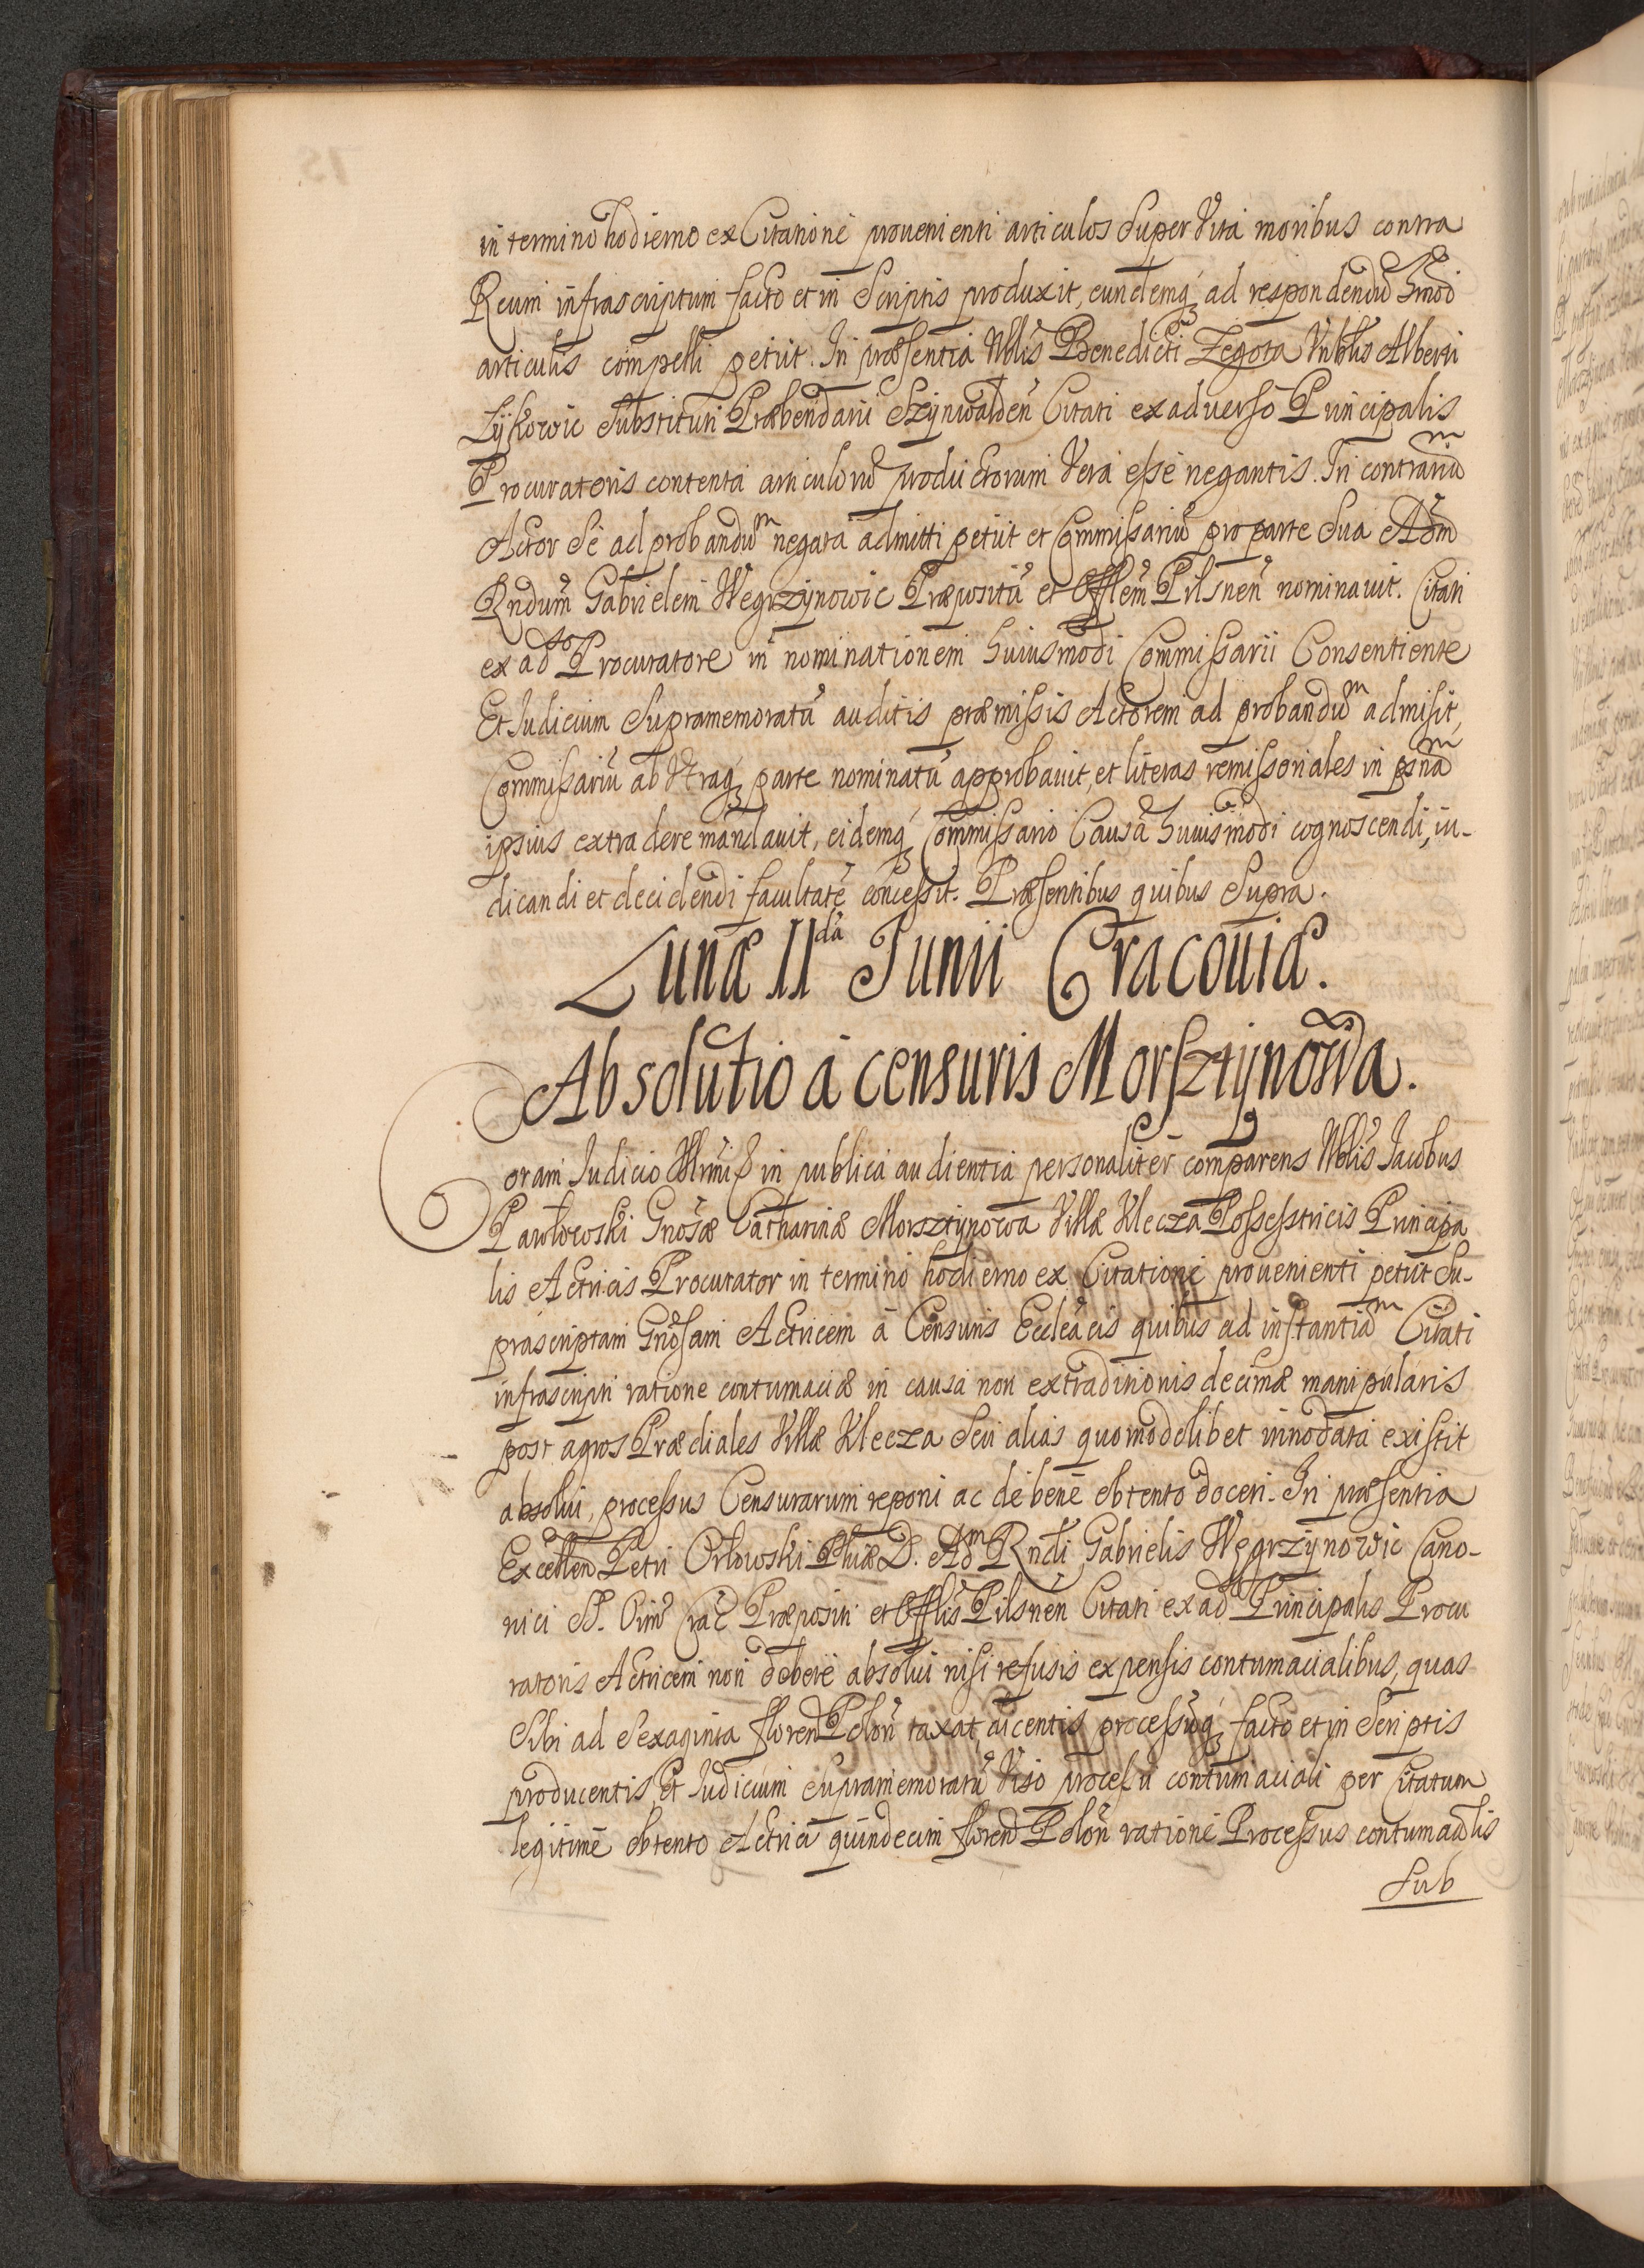 in termino hodierno ex Citatione prouenienti articulos super Vita moribus contra
Reum infrascriptum facto et in Scriptis produxit, eundemq; ad respondendũ hmođ
articulis compelli petiit. In præsentia Nblis Benedicti Zegota Vnblis Alberti
Lykowic Substituti Præbendarii Szynwalden̄ Citati ex aduerso Principalis
Procuratoris contenta articulorũ productorum Vera esse negantis. In contrariũ
Actor Se ad probandũ negata admitti petiit et Commissariũ pro parte Sua Adm̄
Rndum̄ Gabrielem Węgrzynowic Præpositũ et Offlem̄ Pilsnen̄ nominauit. Citati
ex adso Procuratore in nominationem huiusmodi Commissarii Consentiente
Et Iudicium Supramemoratũ auditis præmissis Actorem ad probandũ admisit,
Commissariũ ab Vtraq; parte nominatũ approbauit, et literas remissoriales in psnã
ipsius extradere mandauit, eidemq; Commissario Causã huiusmodi cognoscendi, iu-
dicandi et decidendi facultatẽ concessit. Præsentibus quibus Supra.
Lunæ IIda Junii Cracouiæ.
Absolutio á censuris Morsztynowa.
Coram Iudicio in publica audientia personaliter comparens Nblis Iacobus
Pawłowski Gnosæ Catharinæ Morsztynowa Villæ Klecza Possesstricis Principa
lis Actricis Procurator in termino hodierno ex Citatione prouenienti petiit Su-
prascriptam Gnosam Actricem á Censuris Eccleacis quibus ad instantiã Citati
infrascripti ratione contumaciæ in causa non extraditionis decimæ manipularis
post agros Prædiales Villæ Klecza Seu alias quomodolibet innodata existit
absolui, processus Censurarum reponi ac de bene obtento doceri. In præsentia
Excellen Petri Orłowski Phiæ D. Adm Rndi Gabrielis Węgrzynowic Cano-
nici Crac̄ Præpositi et Offlis Pilsnen̄ Citati ex adso Principalis Procu
ratoris Actricem non debere absolui nisi refusis expensis contumacialibus, quas
Sibi ad Sexaginta floren Polon̄ taxat, dicentis processũq; facto et in Scriptis
producentis, Et Iudicium Supramemoratũ Viso processu contumaciali per Citatum
legitimē obtento Actrici quindecim floren Polon̄ ratione Processus contumaalis
Sub